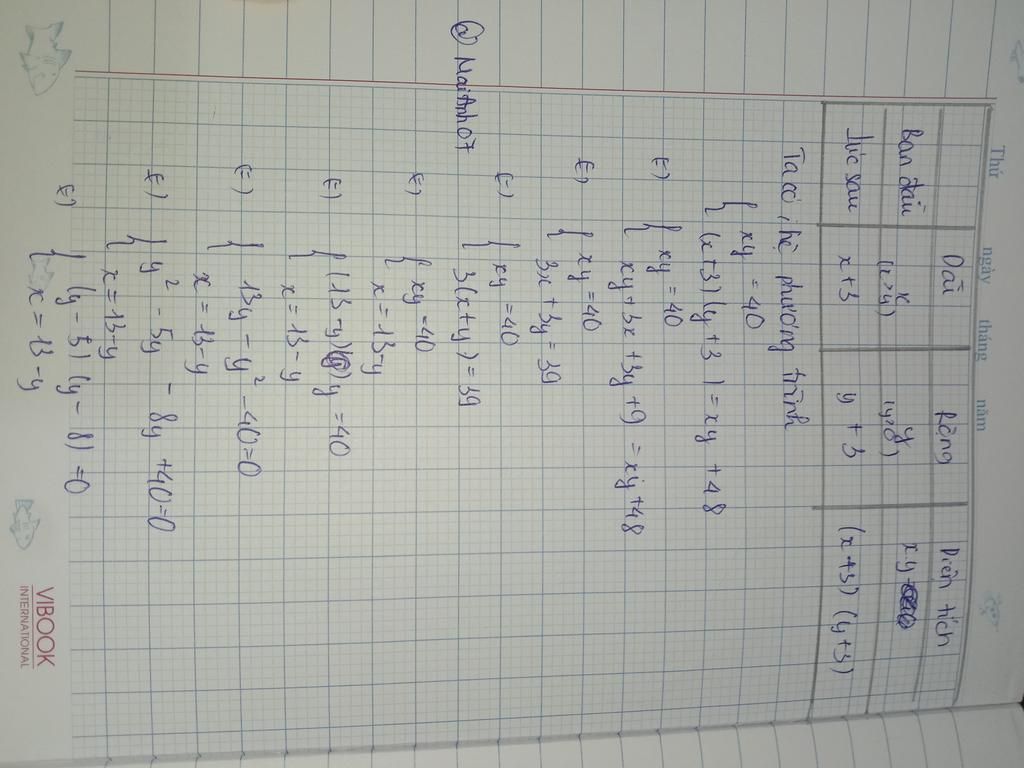 Thứ ngày tháng năm
Dài Rộng Diện tích
Ban đầu x y x.y
(x>y) (y>0)
Lúc sau x+3 y+3 (x+3)(y+3)
Ta có hệ phương trình
{ xy = 40
(x+3)(y+3) = xy + 48
(=) { xy = 40
xy + 3x + 3y + 9) = xy + 48
(=) { xy = 40
3x + 3y = 39
(=) { xy = 40
3(x+y) = 39
(=) { xy = 40
x = 13-y
(=) { (13-y)y = 40
x = 13-y
(=) { 13y - y² - 40 = 0
x = 13-y
(=) { y² - 5y - 8y + 40 = 0
x = 13-y
(=) { (y-5)(y-8) = 0
x = 13-y
@ MaiAnh07
VIBOOK
INTERNATIONAL